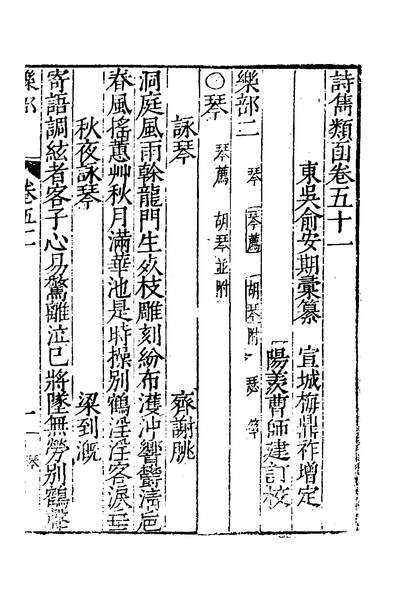 詩雋類函卷五十一
東吳俞安期彙纂 宣城梅鼎祚增定
陽羨曹師建訂校
樂部二 琴 琴薦 胡琴附 瑟 箏
○琴 琴薦 胡琴並附
詠琴 齊謝朓
洞庭風雨幹龍門生死枝雕刻紛布濩沖響鬱清巵
春風搖蕙艸秋月滿華池是時操別鶴淫淫客淚垂
秋夜詠琴 梁到溉
寄語調絃者客子心易驚離泣已將墜無勞別鶴聲
樂部 卷五十一 一 琴